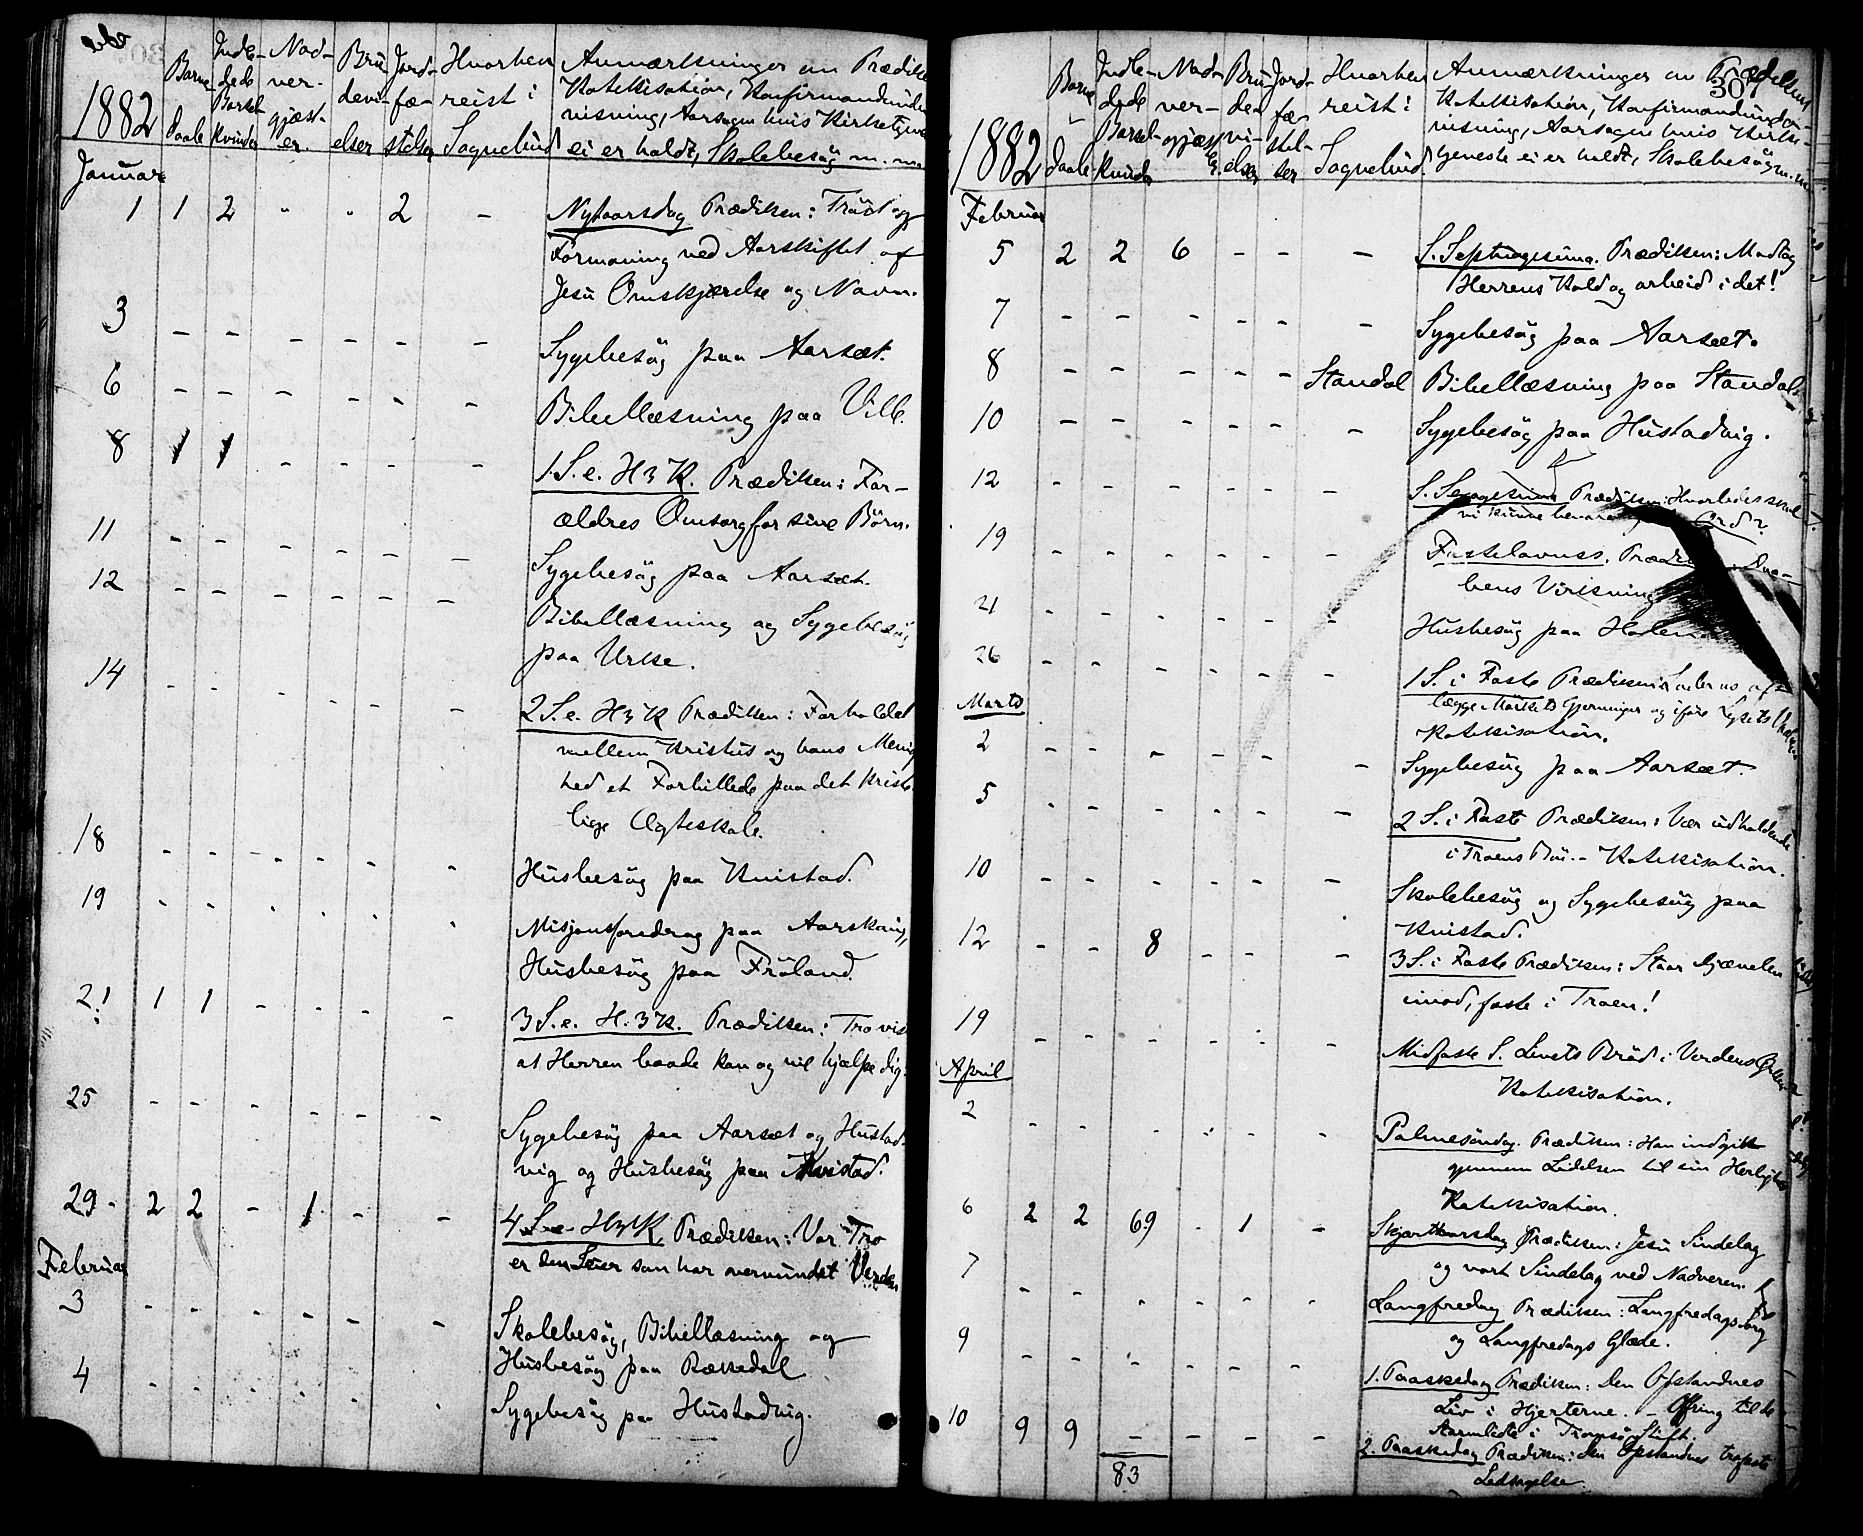 1882
Barne
daabe
Indle-
dede
Barsel
kvinder
Nad-
ver-
gjæst-
er.
Bru-
devi-
elser
Jord-
fæ-
stelser
Hvorhen
reist i
Sognebud
Anmærkninger om Prædiken
Katekisation, Konfirmandunder
visning, Aarsagen hvis Kirketjen
ei er holdt, Skolebesøg m. m.
Januar
1 1 2 " " 2 - Nytaarsdag Prædiken: Trøst og
Formaning ved Aarskiftet af
Jesu Omskjærelse og Navn.
3 - - - - - - Sygebesøg paa Aarsæt.
6 - - - - - - Bibellæsning paa Ville.
8 1 1 - - - - 1. S. e. H 3 K. Prædiken: For-
ældres Omsorg for sine Børn.
11 - - - - - - Sygebesøg paa Aarsæt.
12 - - - - - - Bibellæsning og Sygebesøg
paa Urke.
14 - - - - - - 2 S. e. H 3 K Prædiken: Forholdet
mellem Kristus og hans Menig
hed et Forbillede paa det Kriste
lige Ægteskab.
18 - - - - - - Husbesøg paa Kvistad.
19 - - - - - - Misjonsforedrag paa Aarskaug,
Husbesøg paa Frøland.
2! 1 1 - - - - 3 S. e. H. 3 K. Prædiken: Tro vis
at Herren baade kan og vil hjælpe dig.
25 - - - - - - Sygebesøg paa Aarsæt og Hustad-
vig og Husbesøg paa Kvistad.
29 - 2 2 - 1 - - 4 S. e. H 3 K, Prædiken: Vor Tro
er den Seier som har overvundet Verden
Februar
3 - - - - - - Skolebesøg, Bibellæsning og
Husbesøg paa Rækkedal
4 - - - - - - Sygebesøg paa Hustadvig.
307
1882
Barne
daabe
Indle-
dede
Barsel-
kvinder
Nad-
ver-
gjæst
er.
Bru-
de-
vi-
elser
Jord-
fæ-
stel-
ser
Hvorhen
reist i
Sognebud.
Anmærkninger om Prædiken
Katekisation, Konfirmandunder-
visning, Aarsagen hvis Kirke-
tjeneste ei er holdt, Skolebesøg m. m.
Februar
5 2 2 6 - - - S. Septuagesima. Prædiken: Modtag
Herrens Kald og arbeid i det!
7 - - - - - - Sygebesøg paa Aarsæt.
8 - - - - - Standal Bibellæsning paa Standal.
10 - - - - - - Sygebesøg paa Hustadvig.
12 - - - - - - S. Sexagesima Prædiken: Hvorledes skal
vi kunne bevare Ord?
19 - - - - - - Fastelavnss. Prædiken: Daa-
bens Virkning
21 - - - - - - Husbesøg paa
26 - - - - - 1 S. i Faste Prædiken: Lader os af-
lægge Mørkets Gjerninger og iføre Lysets Vaaben
Katekisation.
Marts
2 - - - - - - Sygebesøg paa Aarsæt.
5 - - - - - - 2 S. i Faste Prædiken: Vær udholdende
i Troens Bøn. - Katekisation.
10 - - - - - - Skolebesøg og Sygebesøg paa
Kvistad.
12 - - 8 - - - 3 S. i Faste Prædiken: Staar Djævelen
imod, faste i Troen!
19 - - - - - - Midfaste S. Livets Brød i Verdens Ørken
Katekisation.
April
2 - - - - - - Palmesøndag. Prædiken: Han indgik
gjennem Lidelsen til sin Herlighed
Katekisation.
6 2 2 69 - 1 - Skjærthorsdag Prædiken: Jesu Sindelag
og vort Sindelag ved Nadveren.
7 - - - - - - Langfredag Prædiken: Langfredags Sorg
og Langfredags Glæde.
9 - - - - - - 1. Paaskedag Prædiken: Den Opstandnes
Liv i Hjerterne. - Ofring til de
i Tromsø Stift.
10 9 9 - - - - 2. Paaskedag Prædiken: den Opstandnes trofaste
Ledsagelse.
83